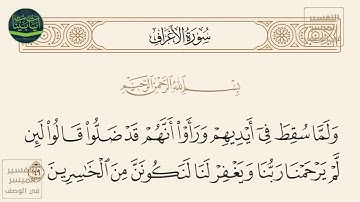 سُورَةُ الأَعْرَافِ
بِسْمِ اللَّهِ الرَّحْمَٰنِ الرَّحِيمِ
وَلَمَّا سُقِطَ فِىٓ أَيْدِيهِمْ وَرَأَوْا۟ أَنَّهُمْ قَدْ ضَلُّوا۟ قَالُوا۟ لَئِن
لَّمْ يَرْحَمْنَا رَبُّنَا وَيَغْفِرْ لَنَا لَنَكُونَنَّ مِنَ ٱلْخَٰسِرِينَ
التفسير
الميسر
في الوصف